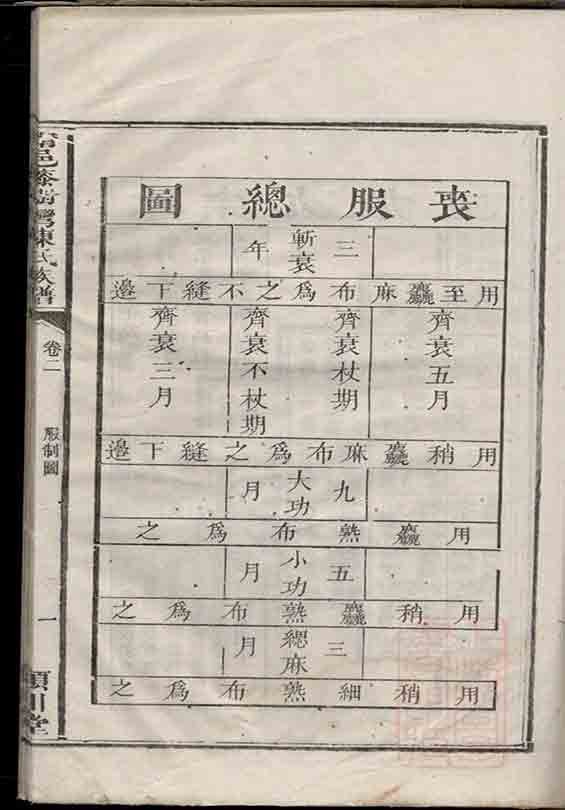 喪服總圖
三
斬衰
年
用至麤麻布為之不縫下邊
齊衰五月
齊衰杖期
齊衰不杖期
齊衰三月
用稍麤麻布為之縫下邊
九
大功
月
用麤熟布為之
五
小功
月
用稍麤熟布為之
三
緦麻
月
用稍細熟布為之
邑藤樹灣陳氏族譜
卷二
服制圖
一
潁川堂